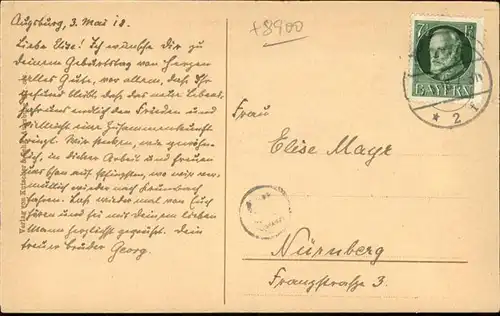 Augsburg, 3. Mai 18.
Liebe Elise! Ich wünsche Dir zu
Deinem Geburtstag von Herzen
alles Gute, vor allem, daß Ihr
gesund bleibt, daß das neue Lebens-
jahr uns endlich den Frieden und
vielleicht eine Zusammenkunft
bringt. Wir stecken, wie gewöhn-
lich, in dicker Arbeit und freuen
uns schon auf Pfingsten, wo wir ver-
mutlich wieder nach Krumbach
fahren. Laß wieder mal von Euch
hören und sei mit Deinem lieben
Mann herzlichst gegrüßt. Dein
treuer Bruder Georg.
Verlag von
+8900
BAYERN
2
Frau
Elise Mayr
Nürnberg
Franzstraße 3.